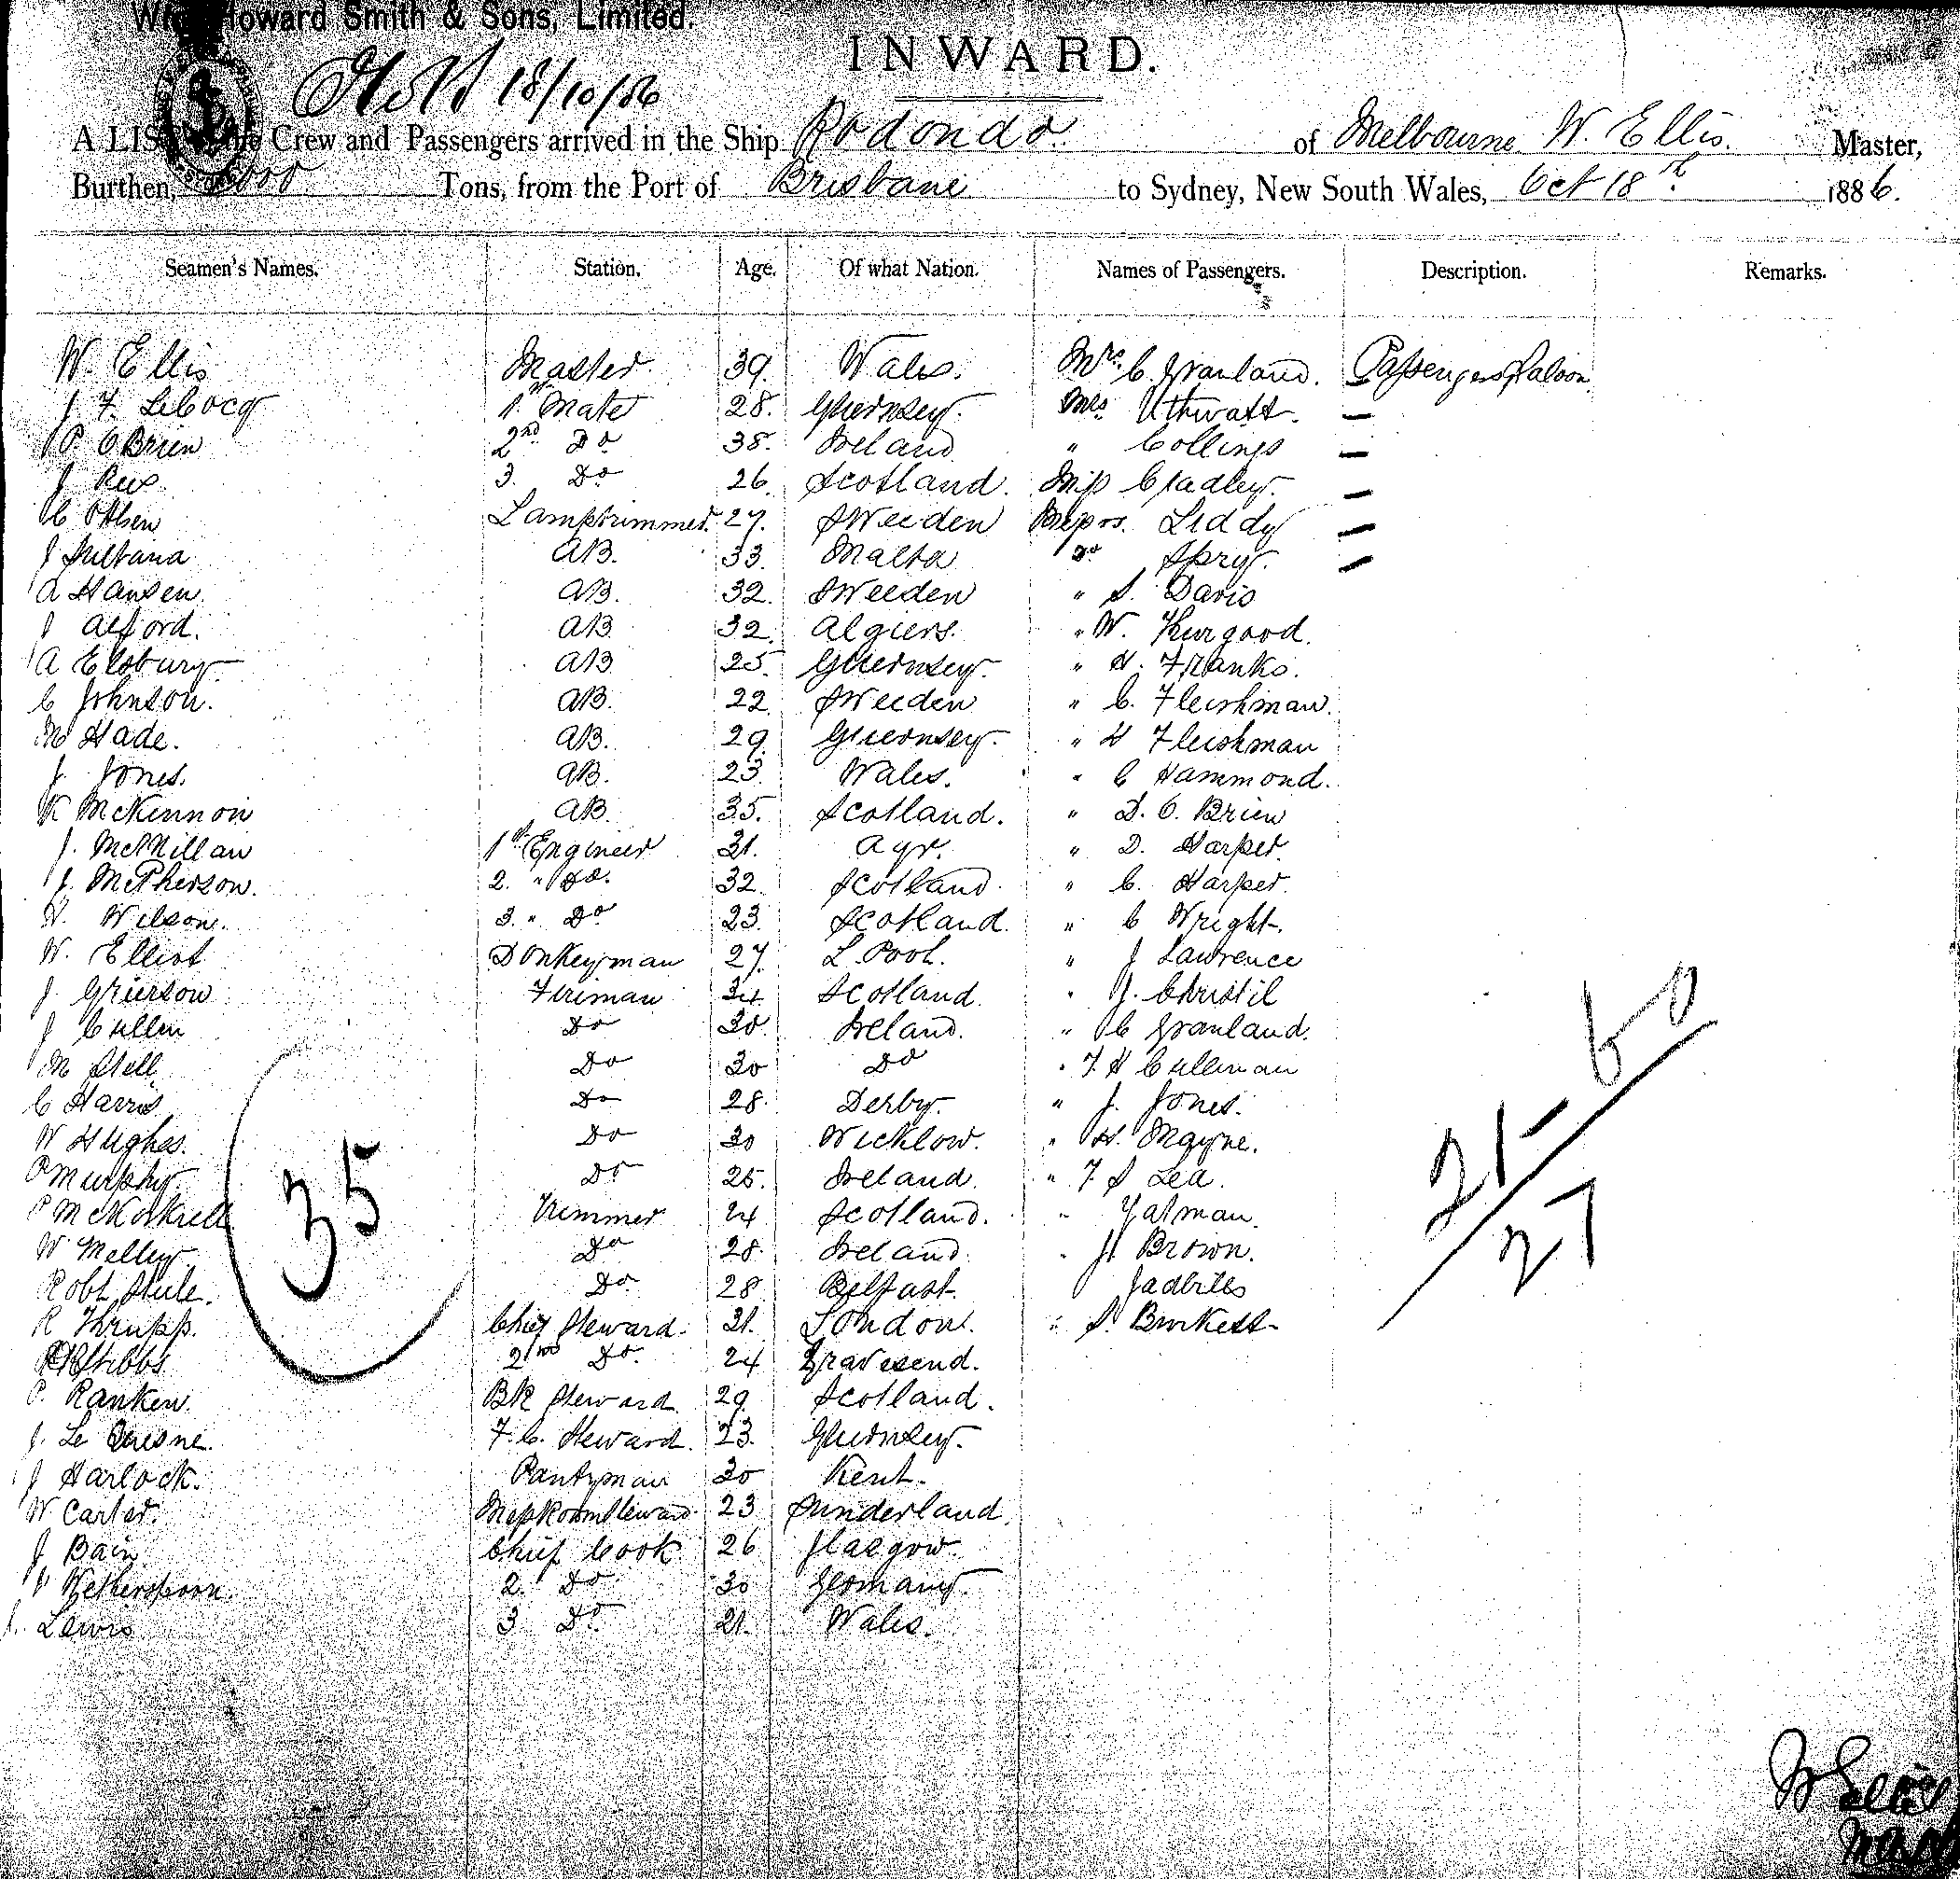 Wm Howard Smith & Sons, Limited.
INWARD.
18/10/86
A LIST of the Crew and Passengers arrived in the Ship Rodondo. of Melbourne W. Ellis. Master,
Burthen, Tons, from the Port of Brisbane to Sydney, New South Wales, Oct 18th 1886.
Seamen's Names. Station. Age. Of what Nation. Names of Passengers. Description. Remarks.
W. Ellis Master 39. Wales. Mrs. C Granland. Passengers Saloon
J. F. LeCocq 1st Mate 28. Guernsey. Mrs. Uthwatt. —
P. OBrien 2nd Do 38. Ireland " Collings —
J Rees. 3. Do 26. Scotland. Miss Cradley. —
C Ohlsen Lamptrimmer. 27. SWeeden Messrs. Liddy —
J Sultana AB. 33. Malta Do Spry. —
A Hansen. AB. 32. SWeeden " S. Davis
J Alford. AB 32. Algiers. " W. Thurgood.
A Elsbury AB 25. Guernsey. " H. Franks.
C Johnson. AB. 22. SWeeden " C. Fleishman.
M Hade. AB. 29. Guernsey. " H Fleishman
J. Jones. AB. 23. Wales. " C Hammond.
K McKinnon AB. 35. Scotland. " D. O. Brien
J. McMillan 1st Engineer 31. Ayr. " D. Harper.
J. McPherson. 2. " Do. 32. Scotland. " C. Harper.
Wilson. 3. " Do 23. Scotland. " C Wright.
W. Elliot Donkeyman 27. L. Pool. " J Lawrence
J. Grierson Fireman 34. Scotland. " J. Christil
J Cullen Do 30. Ireland. " C Granland.
M Stell. Do 30 Do " F. H Cullinan
C Harris Do 28. Derby. " J. Jones.
W Hughes. Do 30 Wicklow. " H. Mayne.
P Murphy Do 25. Ireland. " F S Lea.
P McKoskrell Trimmer 24 Scotland. " Yatman.
W Melley Do 28. Ireland. " H Brown.
Robt Steele. Do. 28 Belfast.
R Thrupp. Chief Steward. 31. London. " S. Burkett
Stibbs 2nd Do. 24 Gravesend.
P. Ranken. BR Steward. 29. Scotland.
J. Le Quesne. F. C. Steward. 23. Guernsey.
J Harlock. Pantryman 30 Kent.
W Carter. MessRoomSteward. 23 Sunderland.
J Bain. Chief Cook. 26 Glasgow.
Wetherspoon. 2. Do 30 Germany.
Lewis 3 Do. 21. Wales.
35
6 0
21
27
W Ellis
Mast